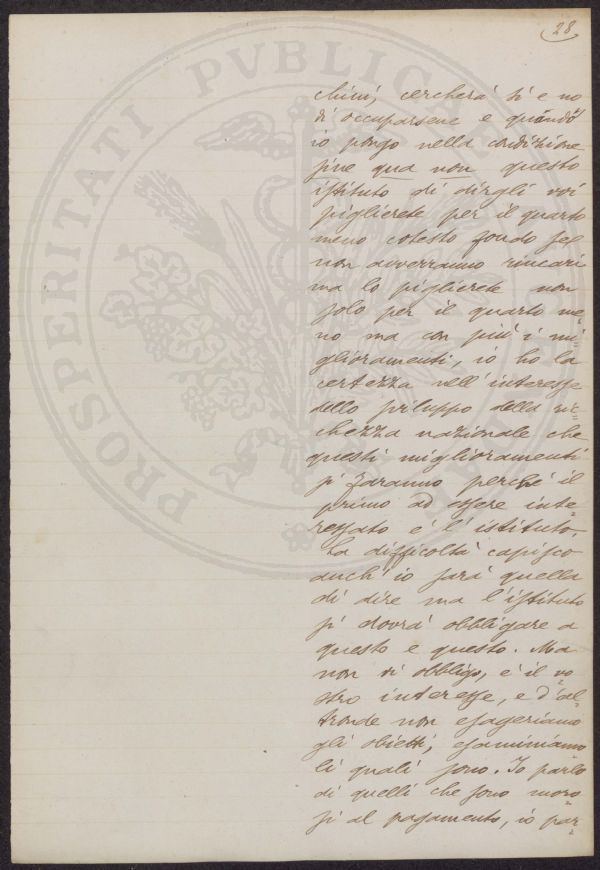 28
chini, cercherà sì e no
di occuparsene e quando
io pongo nella condizione
sine qua non questo
istituto di dirgli voi
piglierete per il quarto
meno cotesto fondo se
non avverranno rincari
ma lo piglierete non
solo per il quarto me=
no ma con più i mi=
glioramenti, io ho la
certezza nell'interesse
dello sviluppo della ric=
chezza nazionale che
questi miglioramenti
si faranno perché il
primo ad essere inte=
ressato è l'istituto.
La difficoltà capisco
anch'io sarà quella
di dire ma l'istituto
si dovrà obbligare a
questo e questo. Ma
non vi obbligo, è il vo=
stro interesse, e d'al=
tronde non esageriamo
gli obietti, esaminiamo
li quali sono. Io parlo
di quelli che sono moro=
si al pagamento, io par=
PROSPERITATI PVBLICAE